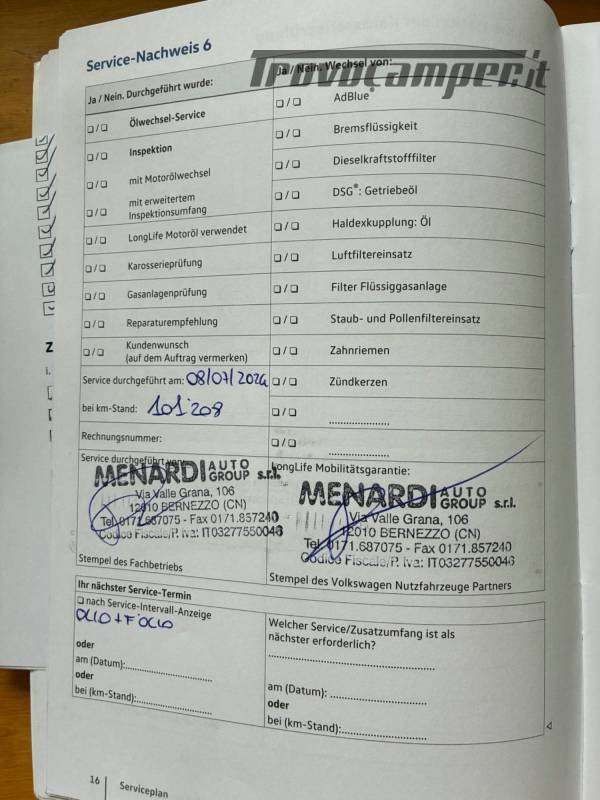 Service-Nachweis 6
TrovoCamper.it
Ja / Nein. Durchgeführt wurde:
❏ / ❏ Ölwechsel-Service
❏ / ❏ Inspektion
❏ / ❏ mit Motorölwechsel
❏ / ❏ mit erweitertem
Inspektionsumfang
❏ / ❏ LongLife Motoröl verwendet
❏ / ❏ Karosserieprüfung
❏ / ❏ Gasanlagenprüfung
❏ / ❏ Reparaturempfehlung
❏ / ❏ Kundenwunsch
(auf dem Auftrag vermerken)
Service durchgeführt am: 08/07/2024
bei km-Stand: 101.208
Rechnungsnummer:
Ja / Nein. Wechsel von:
❏ / ❏ AdBlue
❏ / ❏ Bremsflüssigkeit
❏ / ❏ Dieselkraftstofffilter
❏ / ❏ DSG®: Getriebeöl
❏ / ❏ Haldexkupplung: Öl
❏ / ❏ Luftfiltereinsatz
❏ / ❏ Filter Flüssiggasanlage
❏ / ❏ Staub- und Pollenfiltereinsatz
❏ / ❏ Zahnriemen
❏ / ❏ Zündkerzen
❏ / ❏ ....................
❏ / ❏ ....................
Service durchgeführt von:
MENARDI AUTO GROUP s.r.l.
Via Valle Grana, 106
12010 BERNEZZO (CN)
Tel. 0171.687075 - Fax 0171.857240
Codice Fiscale/P. Iva: IT03277550046
Stempel des Fachbetriebs
LongLife Mobilitätsgarantie:
MENARDI AUTO GROUP s.r.l.
Via Valle Grana, 106
12010 BERNEZZO (CN)
Tel. 0171.687075 - Fax 0171.857240
Codice Fiscale/P. Iva: IT03277550046
Stempel des Volkswagen Nutzfahrzeuge Partners
Ihr nächster Service-Termin
❏ nach Service-Intervall-Anzeige
OLIO + F OLIO
oder
am (Datum):.........................
oder
bei (km-Stand):.....................
Welcher Service/Zusatzumfang ist als
nächster erforderlich?
................................................
am (Datum): ............................
oder
bei (km-Stand):.........................
16 Serviceplan